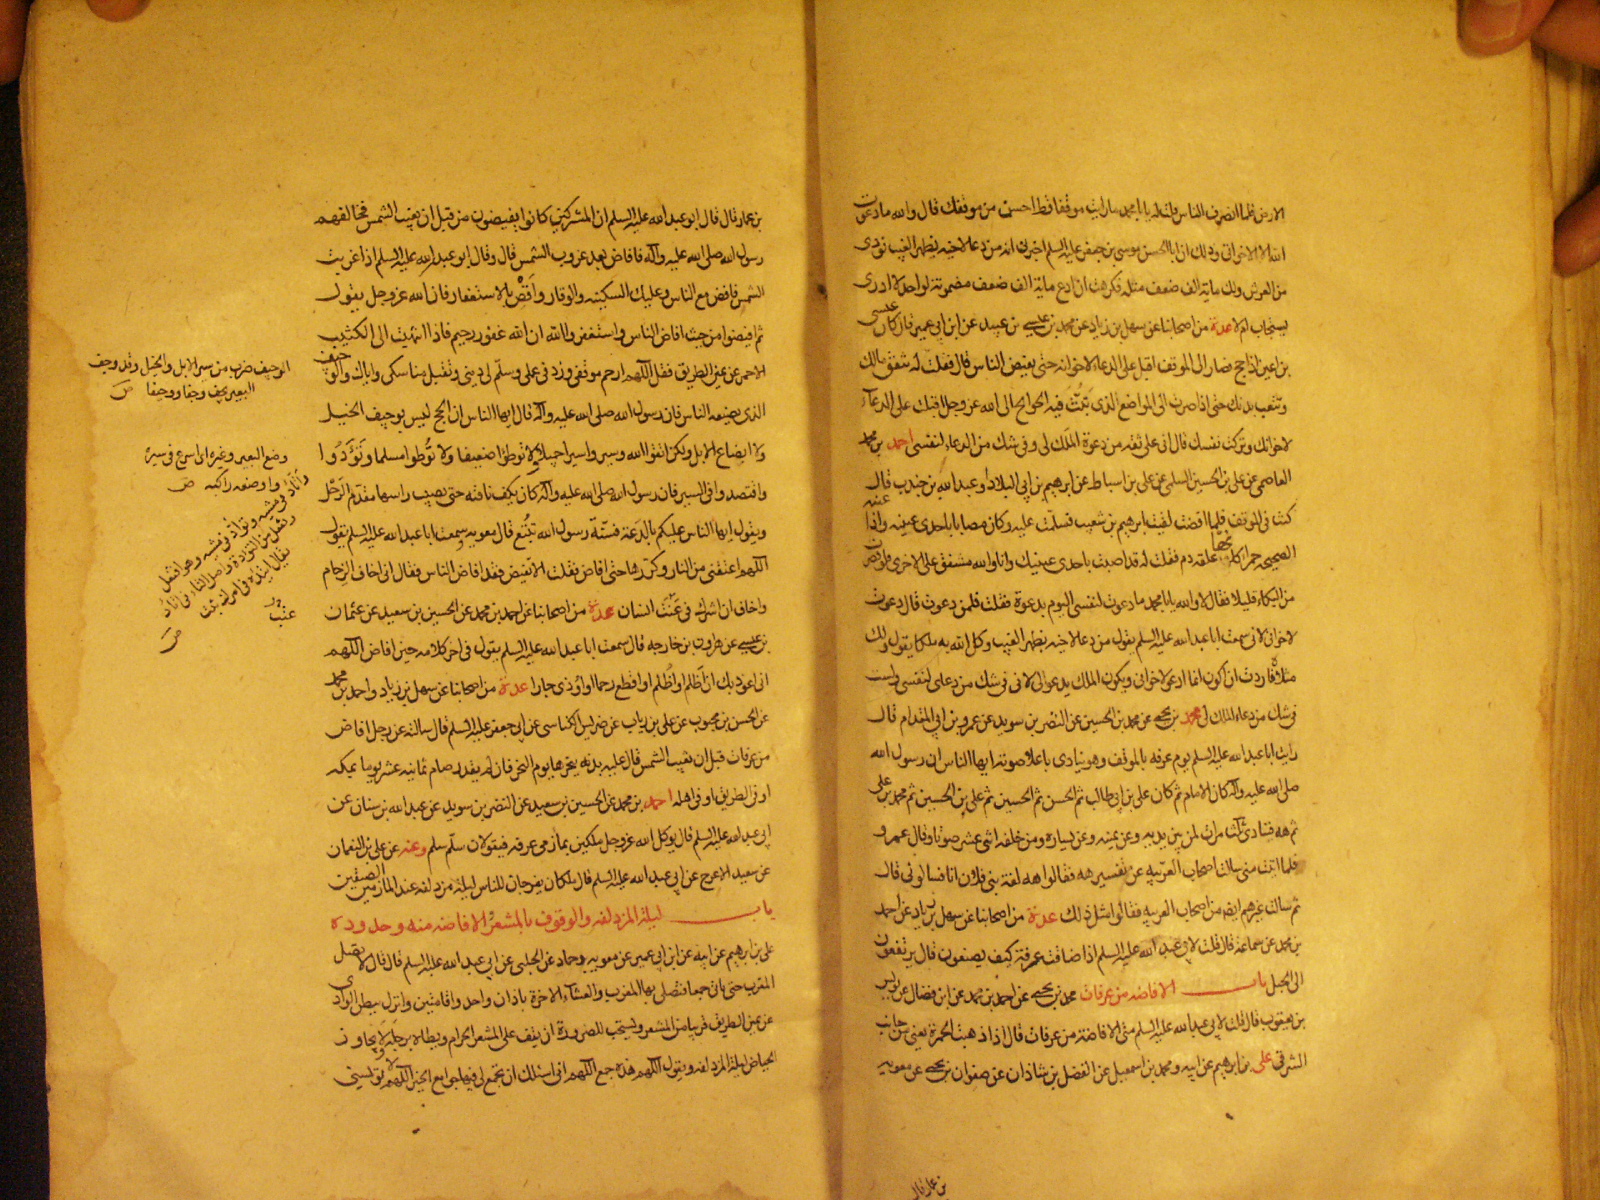 الارض فلما انصرف الناس قلت له يا ابا محمد ما رايت موقفا قط احسن من موقفك قال والله ما دعوت
الله الا لاخواني وذلك ان ابا الحسن موسى بن جعفر عليه السلم اخبرني انه من دعا لاخيه بظهر الغيب نودي
من العرش ولك ماية الف ضعف مثله فكرهت ان ادع ماية الف ضعف مضمونة لواحد لا ادري
يستجاب ام لا عدة من اصحابنا عن سهل بن زياد عن محمد بن عيسى بن عبيد عن ابن ابي عمير قال كان عيسى
بن اعين اذا حج فصار الى الموقف اقبل على الدعاء لاخوانه حتى يفيض الناس قال فقلت له تنفق مالك
وتتعب بدنك حتى اذا صرت الى المواضع الذي تبث فيه الحوائج الى الله عز وجل اقبلت على الدعاء
لاخوانك وتركت نفسك قال اني على ثقة من دعوة الملك لي وفي شك من الدعاء لنفسي احمد بن محمد
العاصمي عن علي بن الحسين السلمي عن علي بن اسباط عن ابرهيم بن ابي البلاد او عبد الله بن جندب قال
كنت في الموقف فلما افضت لقيت ابرهيم بن شعيب فسلمت عليه وكان مصابا باحدى عينيه واذا عينه
الصحيحة حمراء كانها علقة دم فقلت له قد اصبت باحدى عينيك وانا والله مشفق على الاخرى فلو قصرت
من البكاء قليلا فقال لا والله يا ابا محمد ما دعوت لنفسي اليوم بدعوة فقلت فلمن دعوت قال دعوت
لاخواني لاني سمعت ابا عبد الله عليه السلم يقول من دعا لاخيه بظهر الغيب وكل الله به ملكا يقول ولك
مثلاه فاردت ان اكون انما ادعو لاخواني ويكون الملك يدعو لي لاني في شك من دعائي لنفسي ولست
في شك من دعاء الملك لي محمد بن يحيى عن محمد بن الحسين عن النضر بن سويد عن عمرو بن ابي المقدام قال
رايت ابا عبد الله عليه السلم يوم عرفه بالموقف وهو ينادي باعلا صوته ايها الناس ان رسول الله
صلى الله عليه وآله كان الامام ثم كان علي بن ابي طالب ثم الحسن ثم الحسين ثم علي بن الحسين ثم محمد بن علي
ثم هه فينادي ثلث مرات لمن بين يديه وعن يمينه وعن يساره ومن خلفه اثنى عشر صوتا وقال عمرو
فلما اتيت منى سالت اصحاب العربيه عن تفسير هه فقالوا هه لغة بني فلان انا فسالوني قال
ثم سالت غيرهم ايضا من اصحاب العربية فقالوا مثل ذلك عدة من اصحابنا عن سهل بن زياد عن احمد
بن محمد عن سماعة قال قلت لابي عبد الله عليه السلم اذا ضاقت عرفة كيف يصنعون قال يرتفعون
الى الجبل باب الافاضه من عرفات محمد بن يحيى عن احمد بن محمد عن ابن فضال عن يونس
بن يعقوب قال قلت لابي عبد الله عليه السلم متى الافاضة من عرفات قال اذا ذهبت الحمرة يعني من جانب
الشرقي علي بن ابرهيم عن ابيه ومحمد بن اسمعيل عن الفضل بن شاذان عن صفوان بن يحيى عن معوية
بن عمار قال
بن عمار قال قال ابو عبد الله عليه السلم ان المشركين كانوا يفيضون من قبل ان تغيب الشمس فخالفهم
رسول الله صلى الله عليه وآله فافاض بعد غروب الشمس قال وقال ابو عبد الله عليه السلم اذا غربت
الشمس فافض مع الناس وعليك السكينه والوقار وافض بالاستغفار فان الله عز وجل يقول
ثم افيضوا من حيث افاض الناس واستغفروا الله ان الله غفور رحيم فاذا انتهيت الى الكثيب
الاحمر عن يمين الطريق فقل اللهم ارحم موقفي وزد في علمي وسلم لي ديني وتقبل مناسكي واياك والوجيف
الذي يصنعه الناس فان رسول الله صلى الله عليه وآله قال ايها الناس ان الحج ليس بوجيف الخيل
ولا ايضاع الابل ولكن اتقوا الله وسيروا سيرا جميلا ولا توطوا ضعيفا ولا توطوا مسلما وتوأدوا
واقتصدوا في السير فان رسول الله صلى الله عليه وآله كان يكف ناقته حتى يصيب راسها مقدم الرحل
ويقول ايها الناس عليكم بالدعة فسنة رسول الله تتبع قال معوية وسمعت ابا عبد الله عليه السلم يقول
اللهم اعتقني من النار وكررها حتى افاض فقلت الا تفيض فقد افاض الناس فقال اني اخاف الزحام
واخاف ان اشرك في عنت انسان عدة من اصحابنا عن احمد بن محمد عن الحسين بن سعيد عن عثمان
بن عيسى عن هرون بن خارجه قال سمعت ابا عبد الله عليه السلم يقول في اخر كلامه حين افاض اللهم
اني اعوذ بك ان اظلم او اظلم او اقطع رحما او اوذي جارا عدة من اصحابنا عن سهل بن زياد واحمد بن محمد
عن الحسن بن محبوب عن علي بن رياب عن ضريس الكناسي عن ابي جعفر عليه السلم قال سالته عن رجل افاض
من عرفات قبل ان تغيب الشمس قال عليه بدنه ينحرها يوم النحر فان لم يقدر صام ثمانيه عشر يوما بمكه
او في الطريق او في اهله احمد بن محمد عن الحسين بن سعيد عن النضر بن سويد عن عبد الله بن سنان عن
ابي عبد الله عليه السلم قال يوكل الله عز وجل ملكين بمازمي عرفه فيقولان سلم سلم وعنه عن علي بن النعمان
عن سعيد الاعرج عن ابي عبد الله عليه السلم قال ملكان يفرجان للناس ليلة مزدلفه عند المازمين الضيقين
باب ليلة المزدلفه والوقوف بالمشعر والافاضه منه وحدوده
علي بن ابرهيم عن ابيه عن ابن ابي عمير عن معويه وحماد عن الحلبي عن ابي عبد الله عليه السلم قال قال لا يصلى
المغرب حتى ياتي جمعا فتصلي بها المغرب والعشاء الاخرة باذان واحد واقامتين وانزل ببطن الوادي
عن يمين الطريق قريبا من المشعر ويستحب للصرورة ان يقف على المشعر الحرام ويطاه برجله ولا يجاوز
الحياض ليلة المزدلفه ويقول اللهم هذه جمع اللهم اني اسئلك ان تجمع لي فيها جوامع الخير اللهم لا تويسني
الوجيف ضرب من سير الابل والخيل وقد وجف
البعير يجف وجفا ووجيفا ص
وضع البعير وغيره اي اسرع في سيره
واوضعه راكبه ص